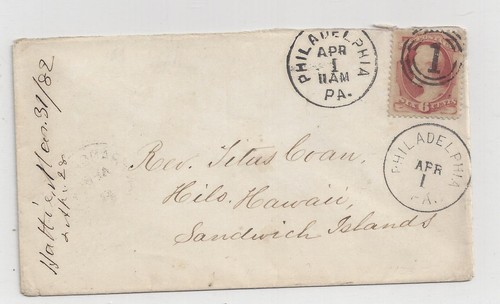 Hattie Mar. 31/82
PHILADELPHIA
APR
1
11AM
PA.
1
SIX CENTS
PHILADELPHIA
APR
1
PA.
Rev. Titus Coan,
Hilo, Hawaii,
Sandwich Islands